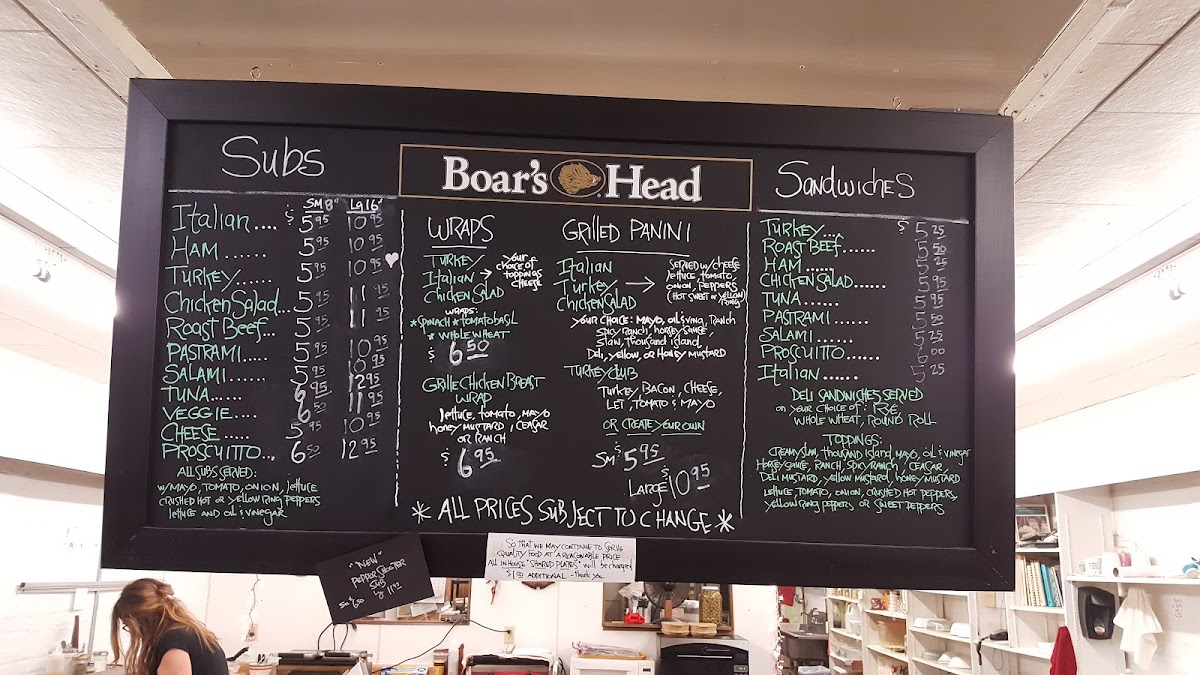 Subs
SM 8" Lg 16"
Italian.... $ 5.95 10.95
HAM...... 5.95 10.95
TURKEY...... 5.95 10.95
Chicken Salad... 5.95 11.95
Roast Beef... 5.95 11.95
PASTRAMI..... 5.95 10.95
SALAMI...... 5.95 10.95
TUNA...... 6.95 12.95
VEGGIE.... 6.50 11.95
CHEESE..... 5.95 10.95
PROSCIUTTO... 6.50 12.95
ALL SUBS SERVED:
W/MAYO, TOMATO, ONION, lettuce
CRUSHED HOT or YELLOW RING PEPPERS
lettuce AND OIL & VINEGAR
Boar's Head
WRAPS
TURKEY
Italian
CHICKEN SALAD
your choice of
toppings
CHEESE
WRAPS:
*SPINACH *TOMATO BASIL
*WHOLE WHEAT
$ 6.50
GRILLE CHICKEN BREAST
WRAP
lettuce, tomato, MAYO
honey MUSTARD, CEASAR
OR RANCH
$ 6.95
GRILLED PANINI
Italian
Turkey
CHICKEN SALAD
SERVED W/CHEESE
lettuce, tomato,
ONION, PEPPERS
(HOT SWEET or YELLOW RING)
YOUR CHOICE: MAYO, OIL & VING, RANCH
SPICY RANCH, HORSEY SAUCE,
Slaw, THOUSAND ISLAND,
DELI, YELLOW, OR HONEY MUSTARD
TURKEY CLUB
TURKEY, BACON, CHEESE,
LET, TOMATO & MAYO
OR CREATE YOUR OWN
SM $5.95
LARGE $10.95
* ALL PRICES SUBJECT TO CHANGE *
SANDWICHES
TURKEY... $ 5.25
ROAST BEEF...... 5.50
HAM..... 5.25
CHICKEN SALAD...... 5.95
TUNA...... 5.95
PASTRAMI...... 5.50
SALAMI...... 5.25
PROSCIUTTO...... 6.00
Italian...... 5.25
DELI SANDWICHES SERVED
on YOUR CHOICE OF: RYE
WHOLE WHEAT, ROUND ROLL
TOPPINGS:
CREAMY SLAW, THOUSAND ISLAND, MAYO, OIL & VINEGAR
HORSEY SAUCE, RANCH, SPICY RANCH, CEASAR,
DELI MUSTARD, YELLOW MUSTARD, HONEY MUSTARD
lettuce, TOMATO, ONION, CRUSHED HOT PEPPERS,
YELLOW RING PEPPERS or SWEET PEPPERS
"NEW"
PEPPER SHOOTER
SUB
SM 6.50 Lg 11.95
SO THAT WE MAY CONTINUE TO SERVE
QUALITY FOOD AT A REASONABLE PRICE
ALL IN HOUSE "SHARED PLATES" will be charged
$1.50 ADDITIONAL - Thank you